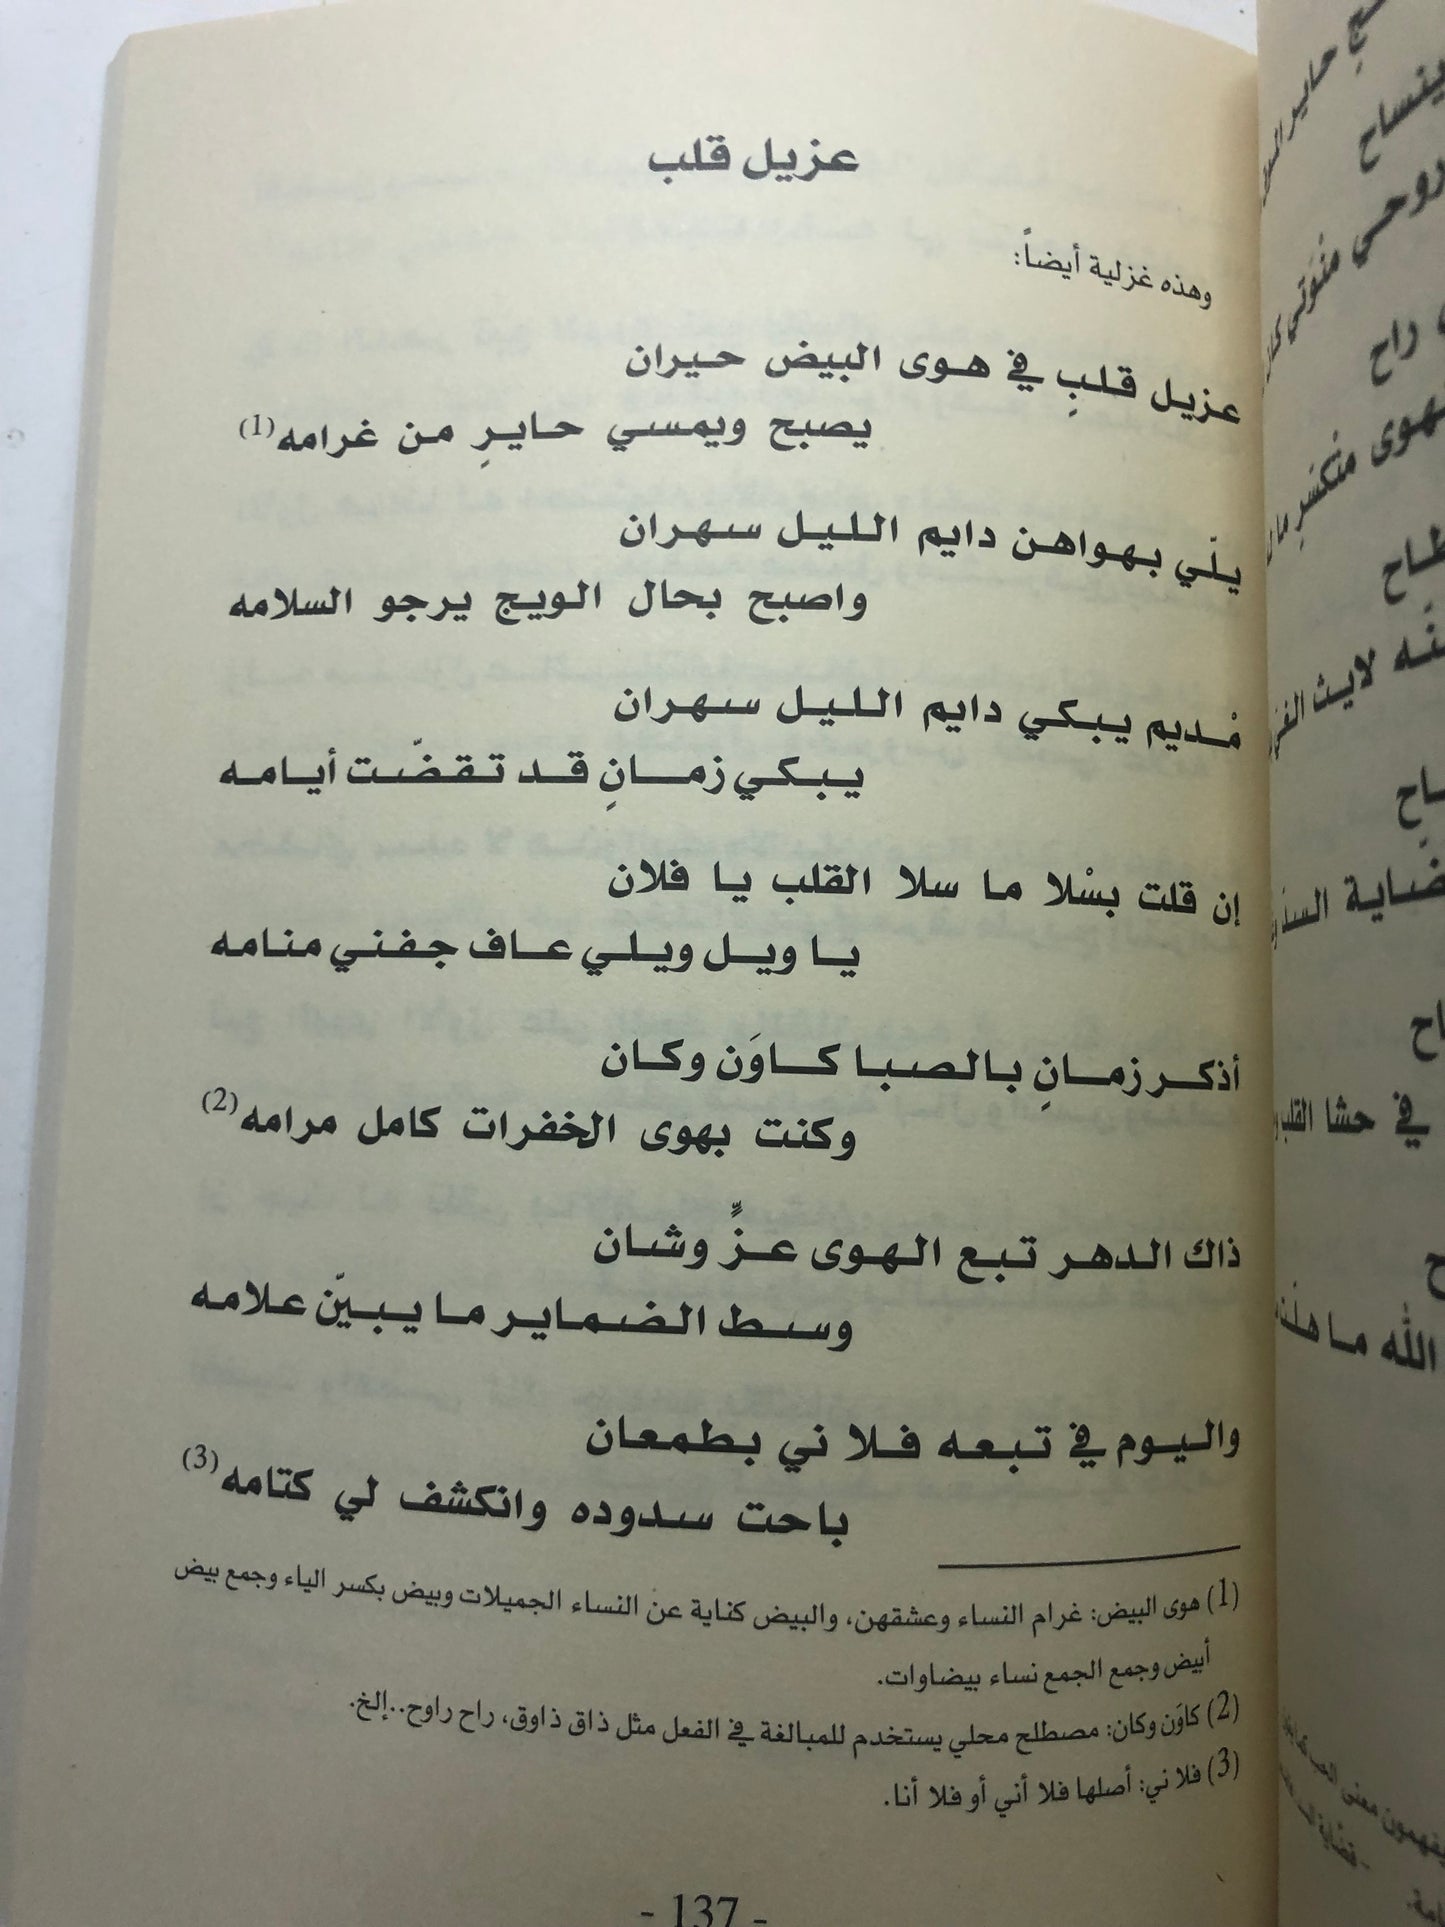 عزيل قلب
وهذه غزلية أيضاً:
عزيل قلبٍ في هوى البيض حيران
يصبح ويمسي حايرٍ من غرامه(1)
يلّي بهواهن دايم الليل سهران
واصبح بحال الويج يرجو السلامه
مْديم يبكي دايم الليل سهران
يبكي زمانٍ قد تقضّت أيامه
إن قلت بسْلا ما سلا القلب يا فلان
يا ويل ويلي عاف جفني منامه
أذكر زمانٍ بالصبا كاوَن وكان
وكنت بهوى الخفرات كامل مرامه(2)
ذاك الدهر تبع الهوى عزٍّ وشان
وسط الضماير ما يبيّن علامه
واليوم في تبعه فلا ني بطمعان
باحت سدوده وانكشف لي كتامه(3)
(1) هوى البيض: غرام النساء وعشقهن، والبيض كناية عن النساء الجميلات وبيض بكسر الياء وجمع بيض
أبيض وجمع الجمع نساء بيضاوات.
(2) كاوَن وكان: مصطلح محلي يستخدم للمبالغة في الفعل مثل ذاق ذاوق، راح راوح..إلخ.
(3) فلا ني: أصلها فلا أني أو فلا أنا.
- 137 -
حاير
ينساح
روحي منْوتي
راح
هوى منْكسرٍ ما
طاح
لايث
ضاية
في حشا القلب
الله ما